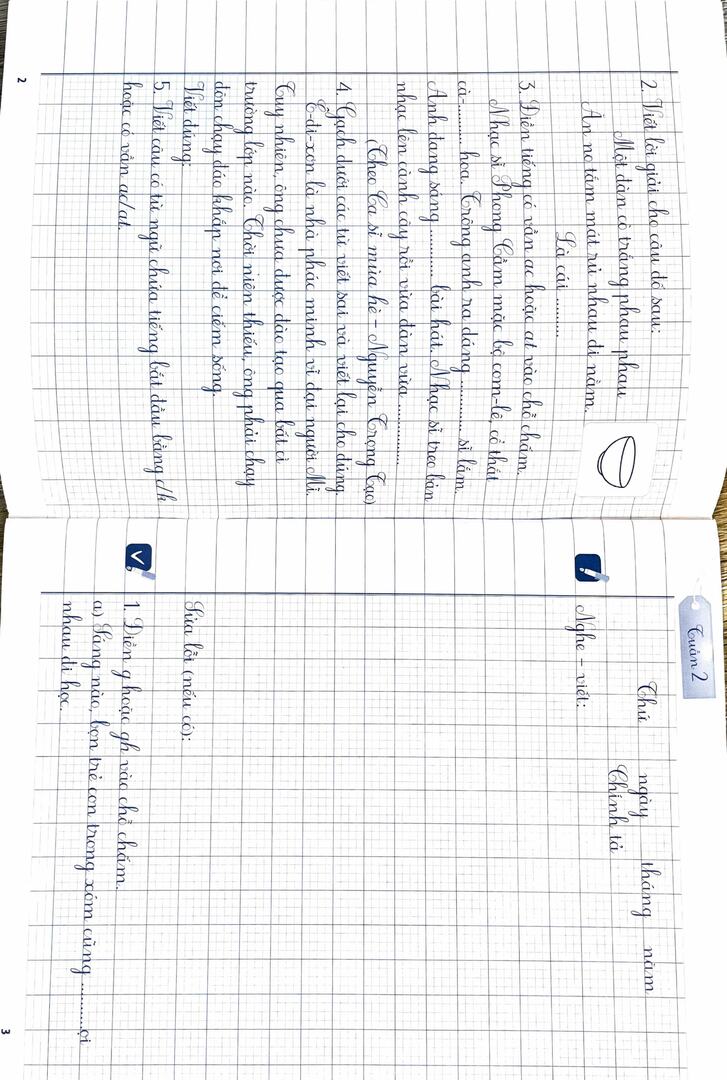 2. Viết lời giải cho câu đố sau:
Một đàn cò trắng phau phau
Ăn no tắm mát rủ nhau đi nằm.
Là cái ..........
3. Điền tiếng có vần ac hoặc at vào chỗ chấm.
Nhạc sĩ Phong Cầm mặc bộ com-lê, cổ thắt
cà-.......... hoa. Trông anh ra dáng .......... sĩ lắm.
Anh đang sáng .......... bài hát. Nhạc sĩ treo bản
nhạc lên cành cây rồi vừa đàn vừa ...............
(Theo Ca sĩ mùa hè - Nguyễn Trọng Tạo)
4. Gạch dưới các từ viết sai và viết lại cho đúng.
Ê-đi-xơn là nhà phác minh vĩ đại người Mĩ.
Tuy nhiên, ông chưa được đào tạo qua bất cì
trường lợp nào. Thời niên thiếu, ông phải chạy
đôn chạy đáo kháp nơi để ciếm sống.
Viết đúng:
5. Viết câu có từ ngữ chứa tiếng bắt đầu bằng c/k
hoặc có vần ac/at.
2
Tuần 2
Thứ ngày tháng năm
Chính tả
Nghe - viết:
Sửa lỗi (nếu có):
1. Điền g hoặc gh vào chỗ chấm.
a) Sáng nào, bọn trẻ con trong xóm cũng ..........ọi
nhau đi học.
3